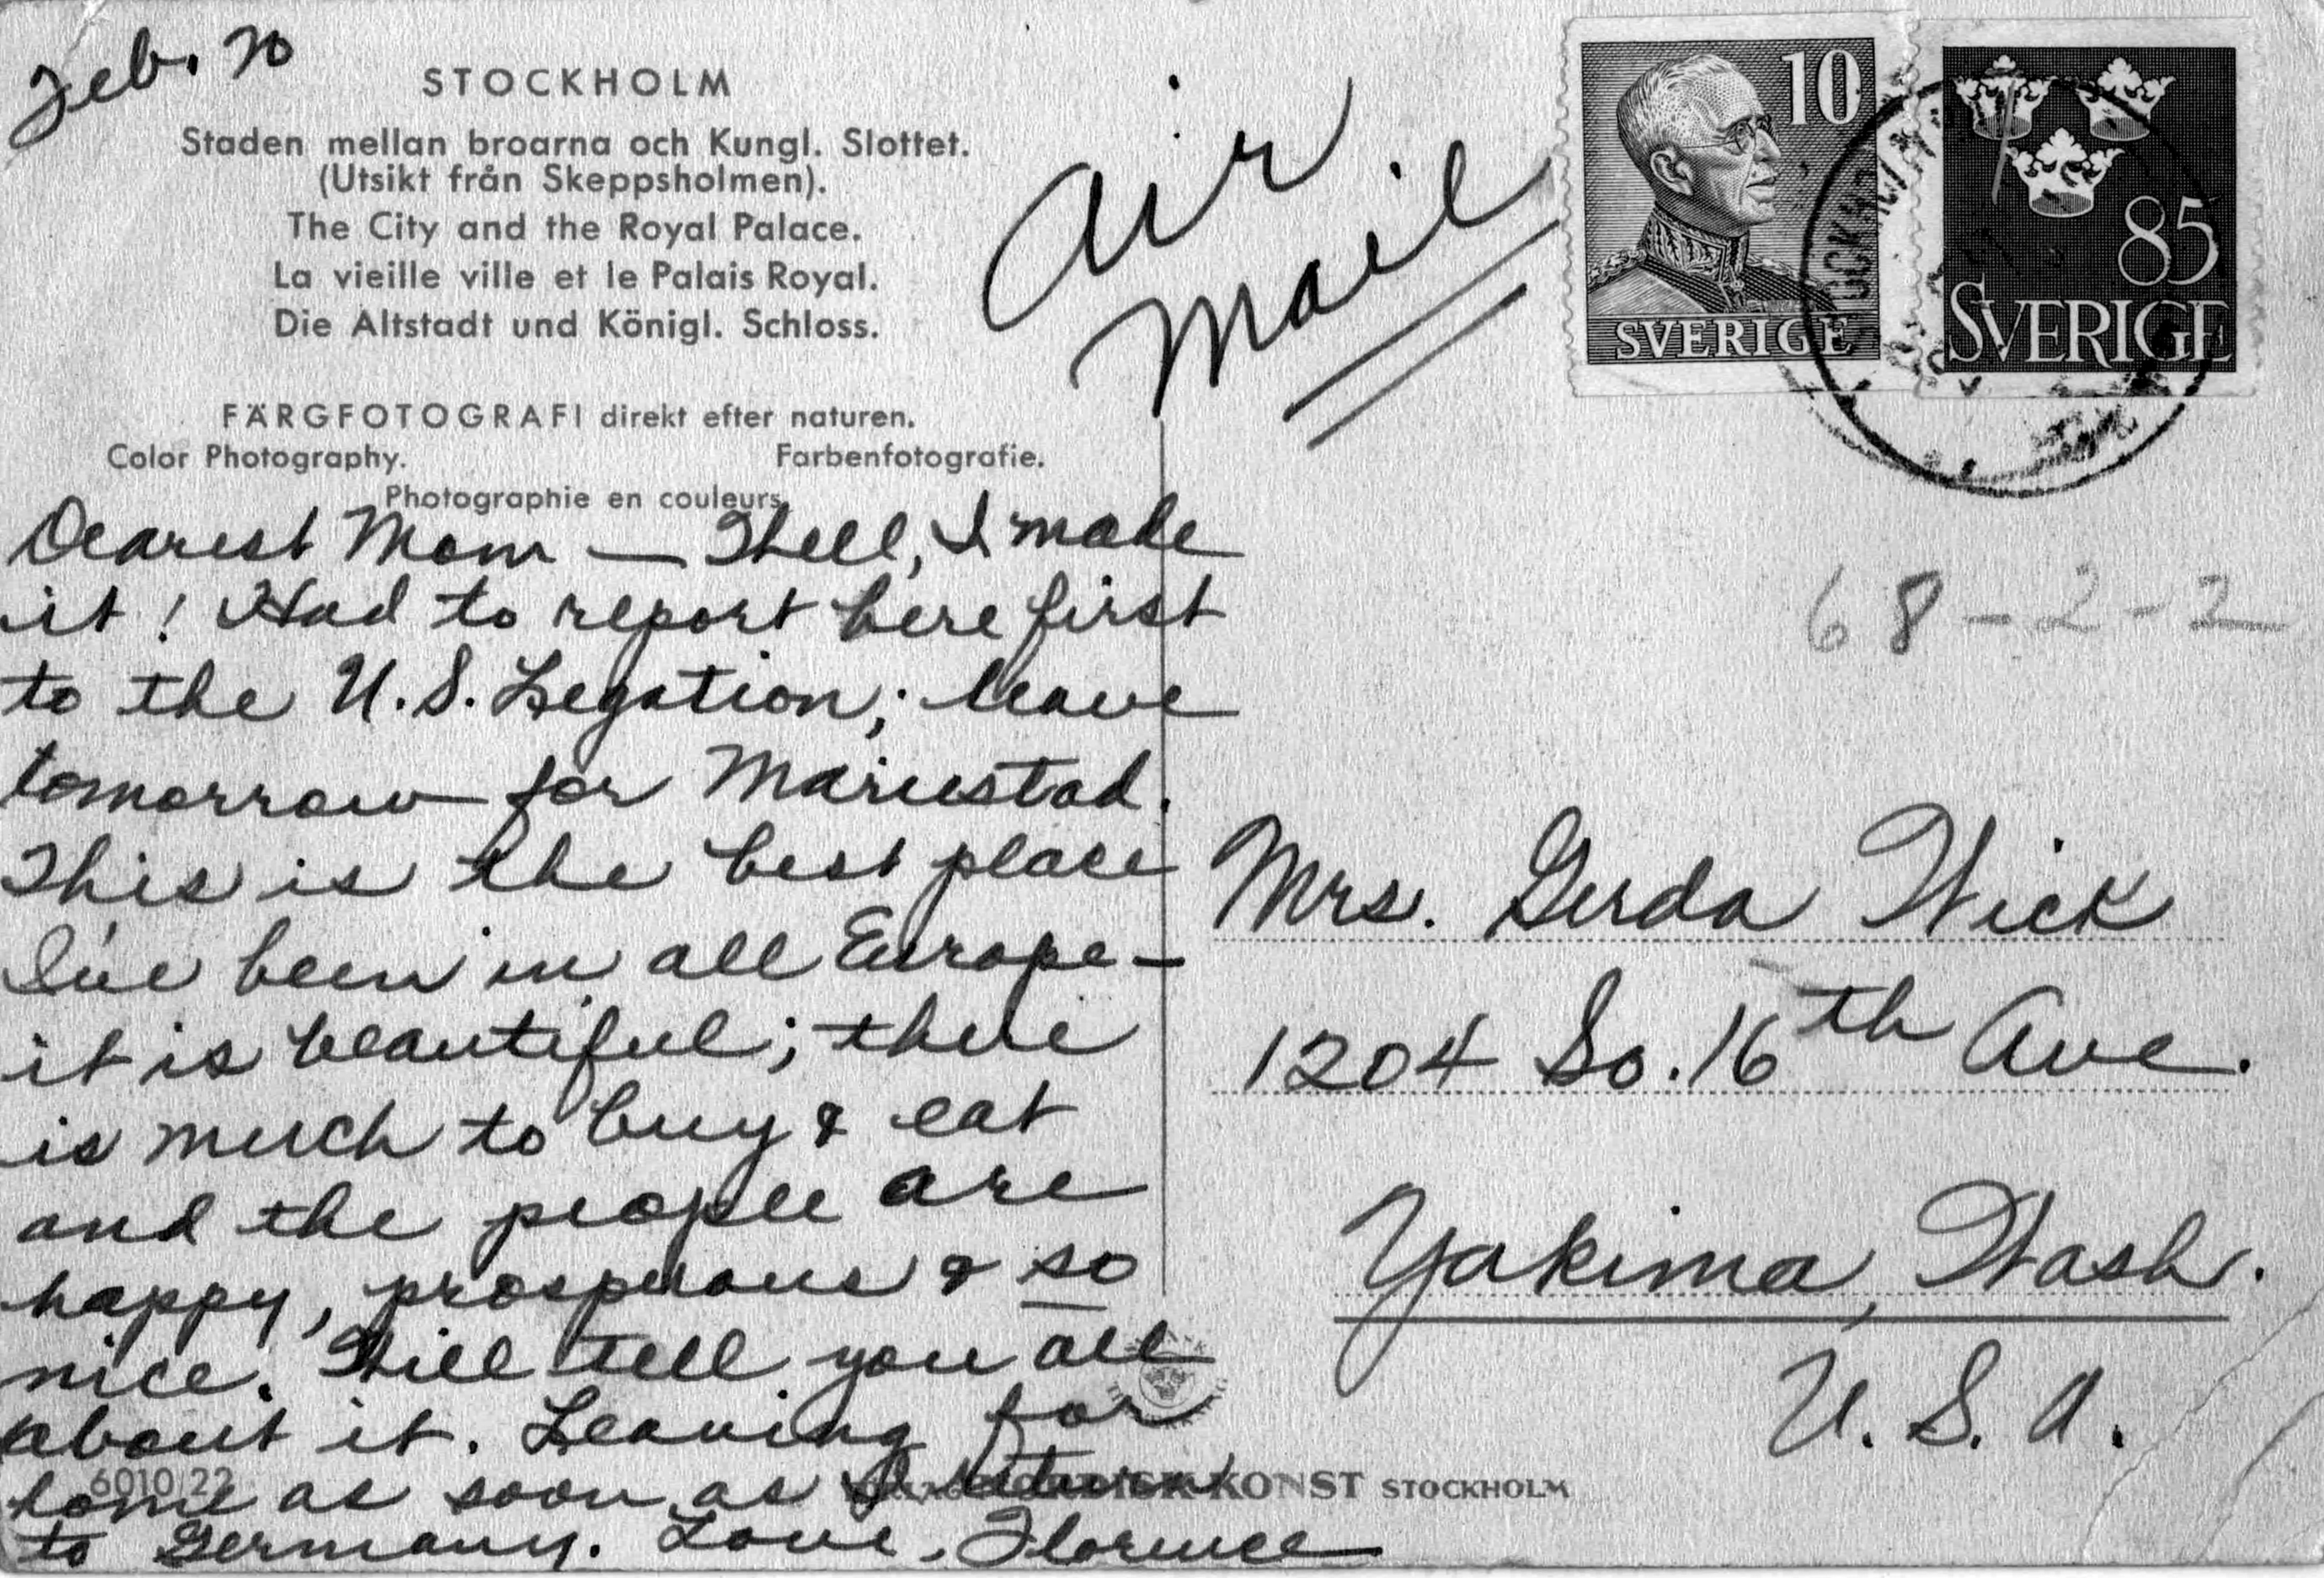 Feb. 20
STOCKHOLM
Staden mellan broarna och Kungl. Slottet.
(Utsikt från Skeppsholmen).
The City and the Royal Palace.
La vieille ville et le Palais Royal.
Die Altstadt und Königl. Schloss.
FÄRGFOTOGRAFI direkt efter naturen.
Color Photography. Farbenfotografie.
Photographie en couleurs.
Air
Mail
10
SVERIGE
85
SVERIGE
Dearest Mom — Well, I made
it! Had to report here first
to the U.S. Legation; leave
tomorrow for Mariestad.
This is the best place
I've been in all Europe —
it is beautiful; there
is much to buy & eat
and the people are
happy, prosperous & so
nice. Will tell you all
about it. Leaving for
home as soon as I return
to Germany. Love, Florence
68-2-2
Mrs. Gerda Wick
1204 So. 16th Ave.
Yakima, Wash.
U. S. A.
6010/22
KONST STOCKHOLM